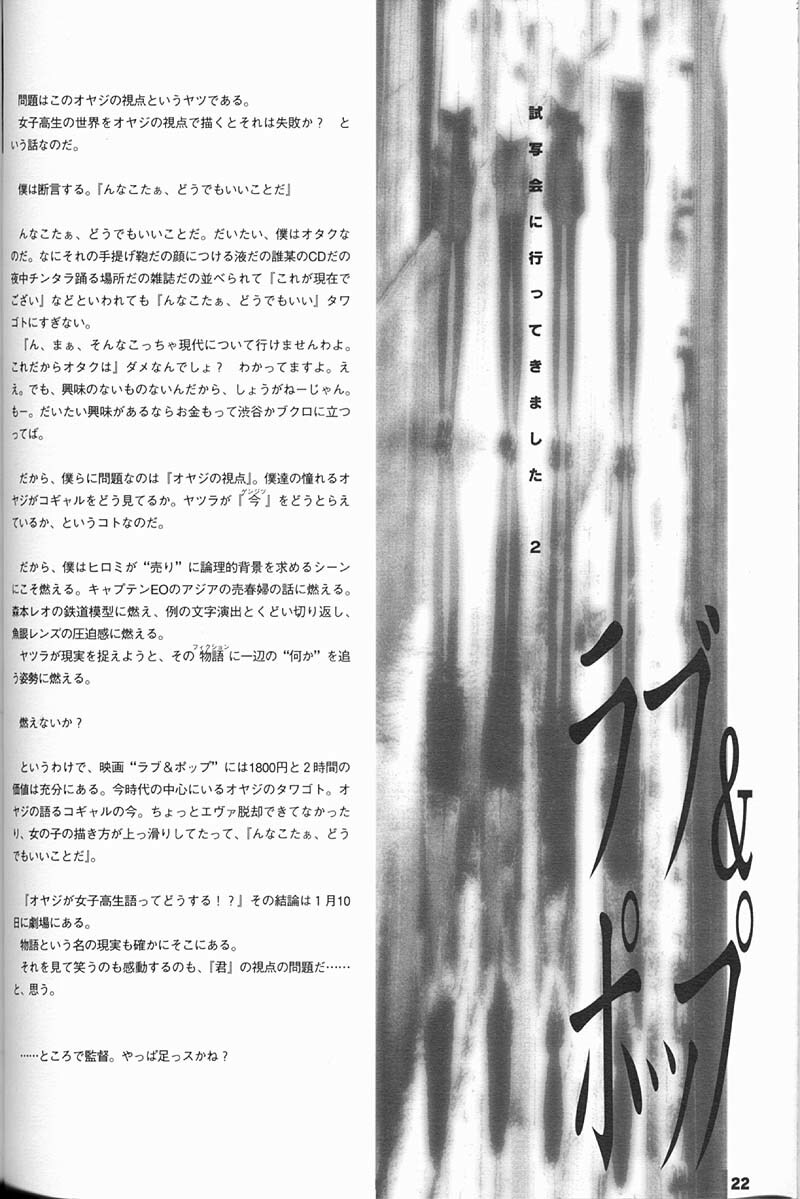 問題はこのオヤジの視点というヤツである。
女子高生の世界をオヤジの視点で描くとそれは失敗か？　と
いう話なのだ。
僕は断言する。『んなこたぁ、どうでもいいことだ』
んなこたぁ、どうでもいいことだ。だいたい、僕はオタクな
のだ。なにそれの手提げ鞄だの顔につける液だの誰某のCDだの
夜中チンタラ踊る場所だの雑誌だの並べられて『これが現在で
ござい』などといわれても『んなこたぁ、どうでもいい』タワ
ゴトにすぎない。
『ん、まぁ、そんなこっちゃ現代について行けませんわよ。
これだからオタクは』ダメなんでしょ？　わかってますよ。え
え。でも、興味のないものないんだから、しょうがねーじゃん。
もー。だいたい興味があるならお金もって渋谷かブクロに立つ
ってば。
だから、僕らに問題なのは『オヤジの視点』。僕達の憧れるオ
ヤジがコギャルをどう見てるか。ヤツラが『今』をどうとらえ
ゲンジツ
ているか、というコトなのだ。
だから、僕はヒロミが“売り”に論理的背景を求めるシーン
にこそ燃える。キャプテンEOのアジアの売春婦の話に燃える。
森本レオの鉄道模型に燃え、例の文字演出とくどい切り返し、
魚眼レンズの圧迫感に燃える。
ヤツラが現実を捉えようと、その物語に一辺の“何か”を追
フィクション
う姿勢に燃える。
燃えないか？
というわけで、映画“ラブ＆ポップ”には1800円と２時間の
価値は充分にある。今時代の中心にいるオヤジのタワゴト。オ
ヤジの語るコギャルの今。ちょっとエヴァ脱却できてなかった
り、女の子の描き方が上っ滑りしてたって、『んなこたぁ、どう
でもいいことだ』。
『オヤジが女子高生語ってどうする！？』その結論は１月10
日に劇場にある。
物語という名の現実も確かにそこにある。
それを見て笑うのも感動するのも、『君』の視点の問題だ……
と、思う。
……ところで監督。やっぱ足っスかね？
試写会に行ってきました　2
ラブ&
ポップ
22